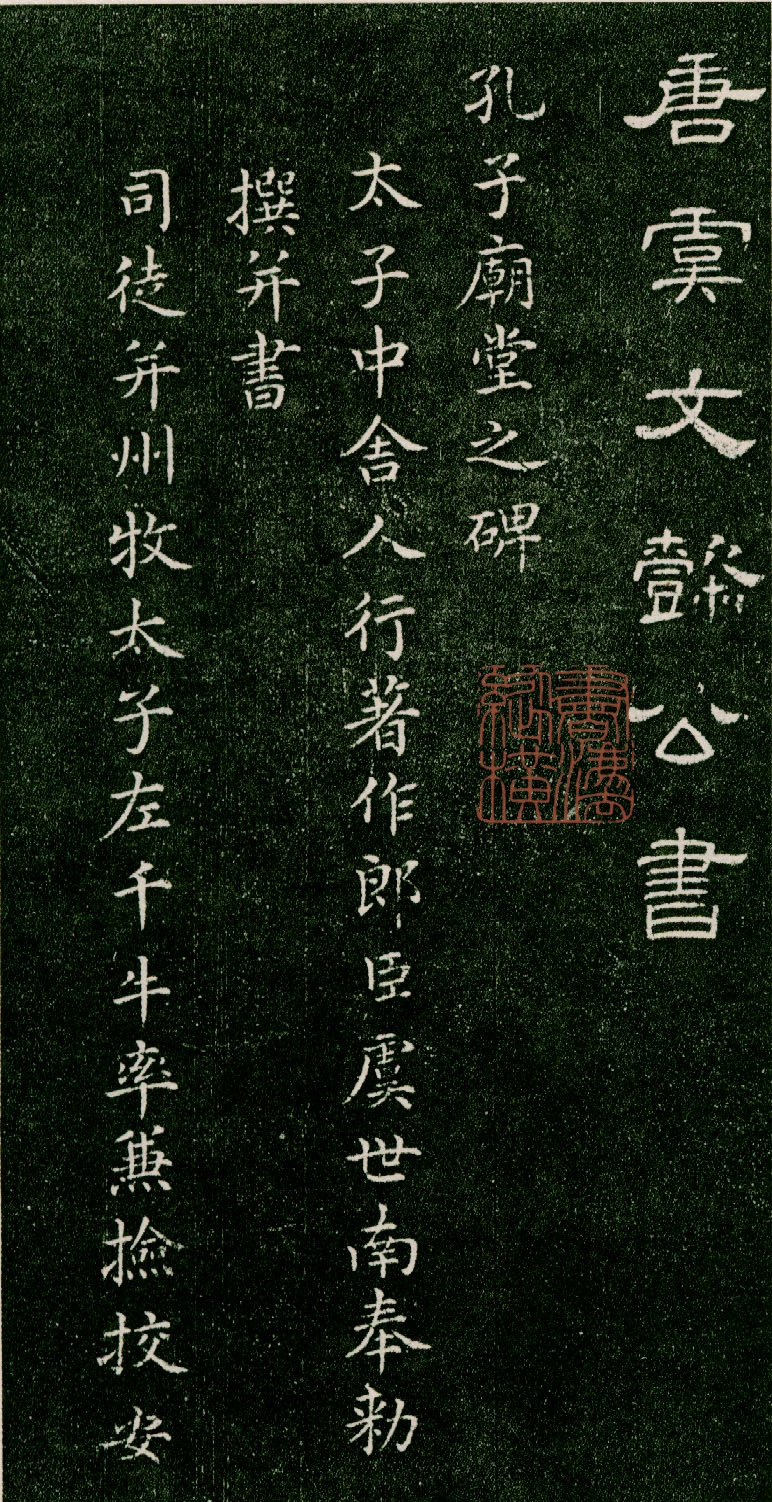 唐虞文懿公書
孔子廟堂之碑
太子中舍人行著作郎臣虞世南奉勑
撰并書
司徒并州牧太子左千牛率兼撿挍安